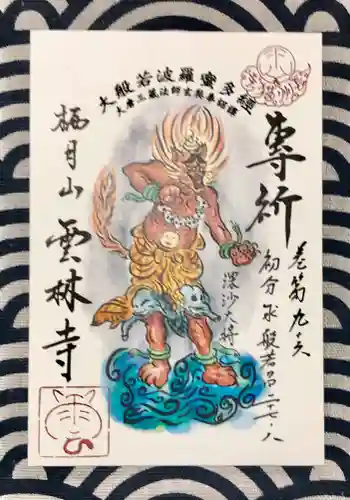 大般若波羅蜜多經
大唐三藏法師玄奘奉詔譯
專祈
卷第九・六
初分 般若品二七・八
毘沙大将
栖月山
雲林寺